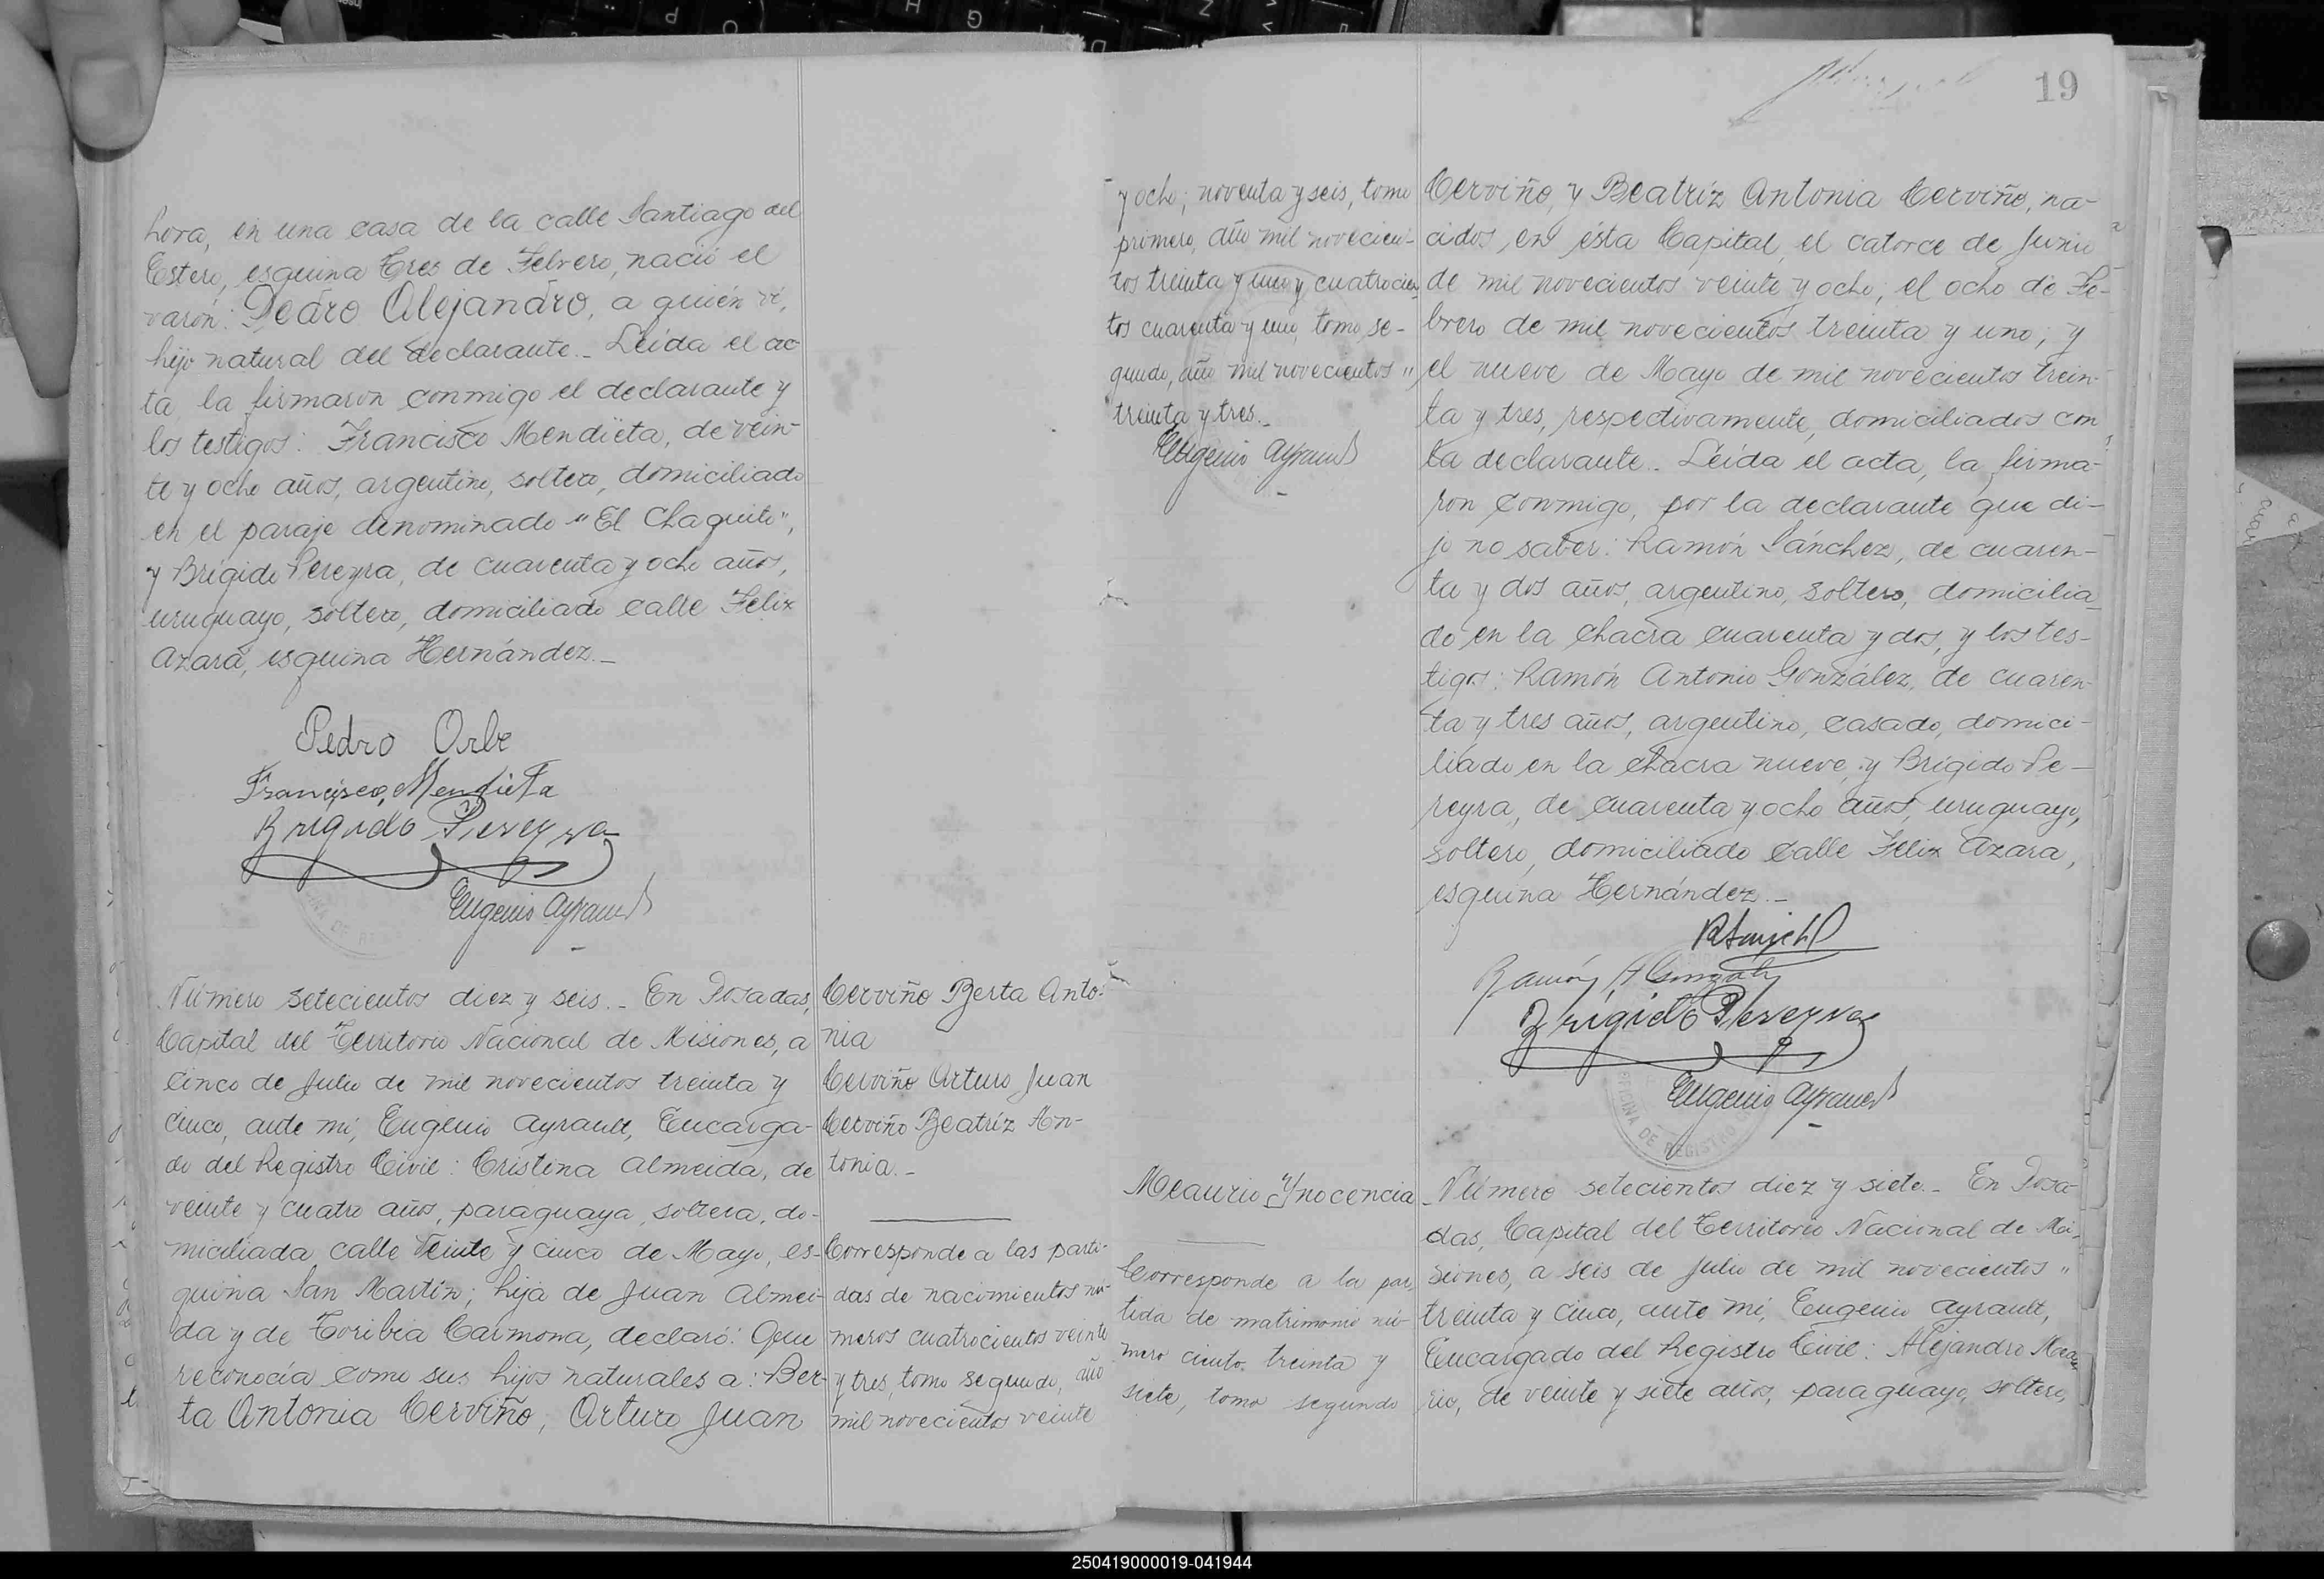 hora, en una casa de la calle Santiago del
Estero, esquina Tres de Febrero, nació el
varón: Pedro Alejandro, a quién ví,
hijo natural del declarante.- Leída el ac-
ta, la firmaron conmigo el declarante y
los testigos: Francisco Mendieta, de vein-
te y ocho años, argentino, soltero, domiciliado
en el paraje denominado "El Chaquito",
y Brígido Pereyra, de cuarenta y ocho años,
uruguayo, soltero, domiciliado calle Felix
Azara, esquina Hernández.-
Pedro Orbe
Francisco Mendieta
Brigido Pereyra
Eugenio Ayrault
Número setecientos diez y seis.- En Posadas,
Capital del Territorio Nacional de Misiones, a
cinco de Julio de mil novecientos treinta y
cinco, ante mí, Eugenio Ayrault, Encarga-
do del Registro Civil: Cristina Almeida, de
veinte y cuatro años, paraguaya, soltera, do-
miciliada calle Veinte y cinco de Mayo, es-
quina San Martín; hija de Juan Almei-
da y de Toribia Carmona, declaró: Que
reconocía como sus hijos naturales a: Ber-
ta Antonia Cerviño, Arturo Juan
Cerviño Berta Anto-
nia
Cerviño Arturo Juan
Cerviño Beatríz An-
tonia.-
Corresponde a las parti-
das de nacimientos nú-
meros cuatrocientos veinte
y tres, tomo segundo, año
mil novecientos veinte
19
y ocho; noventa y seis, tomo
primero, año mil novecien-
tos treinta y uno y cuatrocien-
tos cuarenta y uno, tomo se-
gundo, año mil novecientos "
treinta y tres.-
Eugenio Ayrault
Cerviño, y Beatríz Antonia Cerviño, na-
cidos, en ésta Capital, el catorce de Junio
de mil novecientos veinte y ocho; el ocho de Fe-
brero de mil novecientos treinta y uno; y
el nueve de Mayo de mil novecientos trein-
ta y tres, respectivamente, domiciliados con
la declarante.- Leída el acta, la firma-
ron conmigo, por la declarante que di-
jo no saber: Ramón Sánchez, de cuaren-
ta y dos años, argentino, soltero, domicilia-
do en la chacra cuarenta y dos, y los tes-
tigos: Ramón Antonio González, de cuaren-
ta y tres años, argentino, casado, domici-
liado en la chacra nueve, y Brígido Pe-
reyra, de cuarenta y ocho años, uruguayo,
soltero, domiciliado calle Felix Azara,
esquina Hernández.-
Ramón A Gonzalez
Brigido Pereyra
Eugenio Ayrault
OFICINA DE REGISTRO
Meaurio Ynocencia
Corresponde a la par-
tida de matrimonio nú-
mero ciento treinta y
siete, tomo segundo
Número setecientos diez y siete.- En Posa-
das, Capital del Territorio Nacional de Mi-
siones, a seis de Julio de mil novecientos "
treinta y cinco, ante mí, Eugenio Ayrault,
Encargado del Registro Civil: Alejandro Meau-
rio, de veinte y siete años, paraguayo, soltero,
250419000019-041944